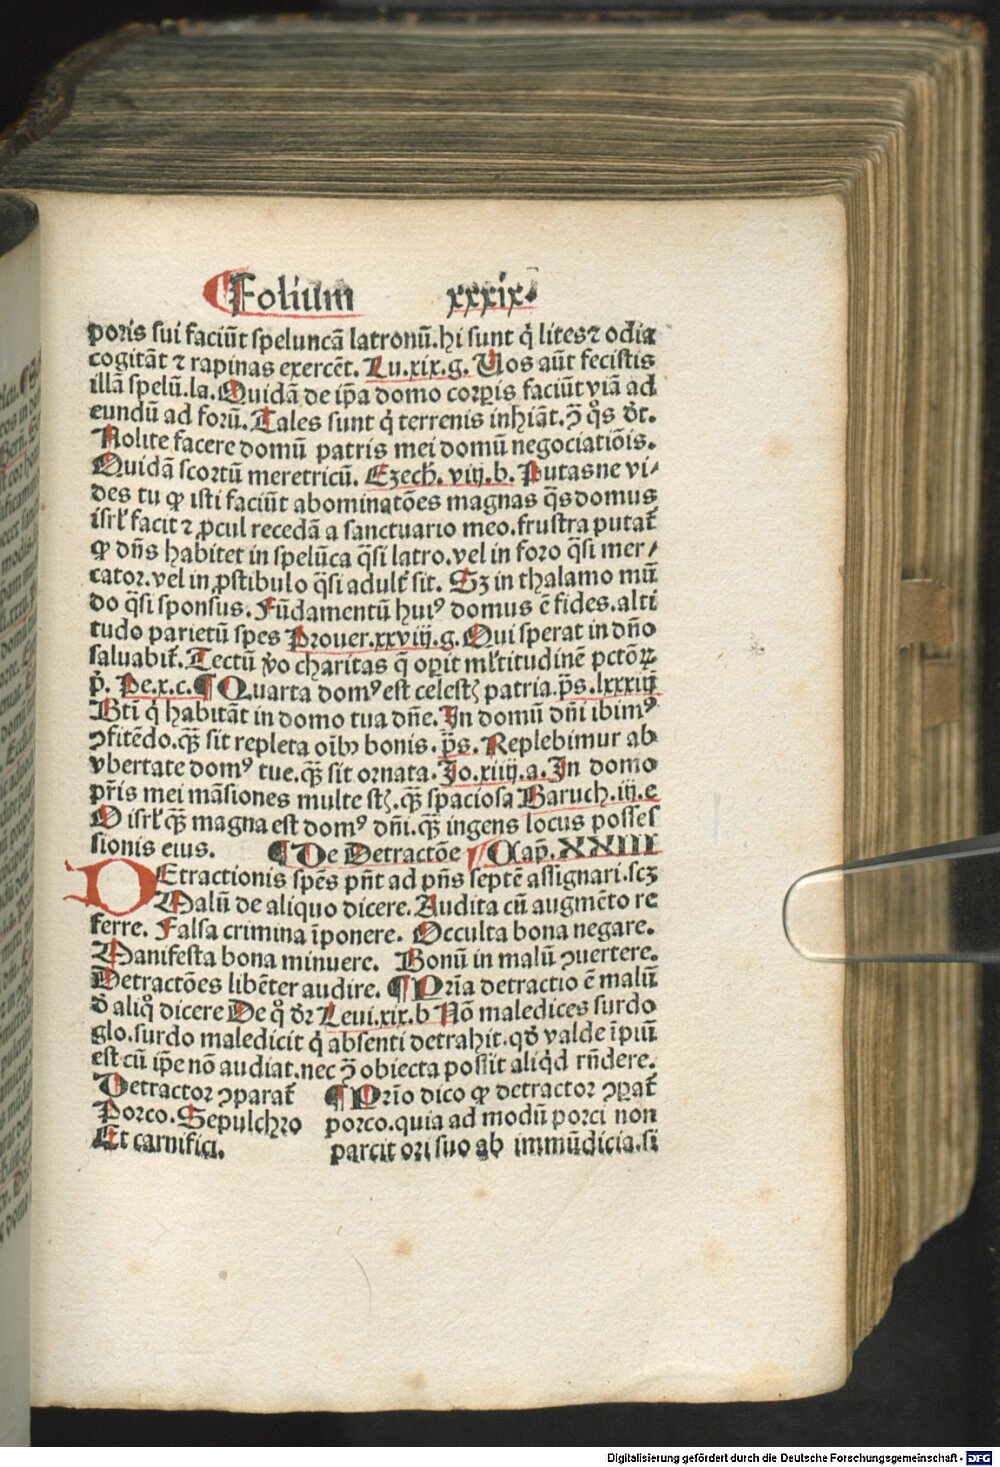 Folium xxxix.
poris sui faciūt speluncā latronū.hi sunt q̇ lites ⁊ odia
cogitāt ⁊ rapinas exercēt. Lu.xix.g. Uos aūt fecistis
illā spelū.la. Quidā de ip̄a domo corꝑis faciūt viā ad
eundū ad forū. Tales sunt q̇ terrenis inhiāt. ꝯ̄ q̊s dr̄.
Nolite facere domū patris mei domū negociatiōis.
Quidā scortū meretricū. Ezech. viij.b. Putasne vi/
des tu ꝙ isti faciūt abominatōes magnas q̄s domus
isrl̓ facit ⁊ ꝓcul recedā a sanctuario meo.frustra putat̄
ꝙ dn̄s habitet in spelūca q̄si latro.vel in foro q̄si mer/
cator.vel in ꝓstibulo q̄si adult̓ sit. Sꝫ in thalamo mū
do q̄si sponsus. Fūdamentū hui⁹ domus ē fides.alti
tudo parietū spes Prouer.xxviij.g. Qui sperat in dn̄o
saluabit̄. Tectū v̓o charitas q̄ oꝑit ml̓titudinē pctōꝝ
ṗ. Pe.x.c. ¶ Quarta dom⁹ est celestꝭ patria.p̄s.lxxxiij
Bt̄i q̇ habitāt in domo tua dn̄e. In domū dn̄i ibim⁹
ꝯfitēdo.qꝫ̄ sit repleta oībꝫ bonis. p̄s. Replebimur ab
vbertate dom⁹ tue.qꝫ̄ sit ornata. Jo.xiiij.a. In domo
pr̄is mei māsiones multe st̄ꝭ.qꝫ̄ spaciosa Baruch.iij.e
O isrl̓ qꝫ̄ magna est dom⁹ dn̄i.qꝫ̄ ingens locus posses
sionis eius. ¶ De Detractōe Cap̄. XXIII
DEtractionis spēs pn̄t ad pn̄s septē assignari.scꝫ
Malū de aliquo dicere. Audita cū augmēto re
ferre. Falsa crimina īponere. Occulta bona negare.
Manifesta bona minuere. Bonū in malū ꝯuertere.
Detractōes libēter audire. ¶ Prīa detractio ē malū
d̄ aliq̊ dicere De q̊ dr̄ Leui.xix.b Nō maledices surdo
glo.surdo maledicit q̇ absenti detrahit.qd̓ valde īpiū
est cū ip̄e nō audiat.nec ꝯ̄ obiecta possit aliq̇d rn̄dere.
Detractor ꝯparat̄ ¶ Prīo dico ꝙ detractor ꝯꝑat̄
Porco. Sepulchro porco.quia ad modū porci non
Et carnifici. parcit ori suo ab immūdicia.si
Digitalisierung gefördert durch die Deutsche Forschungsgemeinschaft - DFG